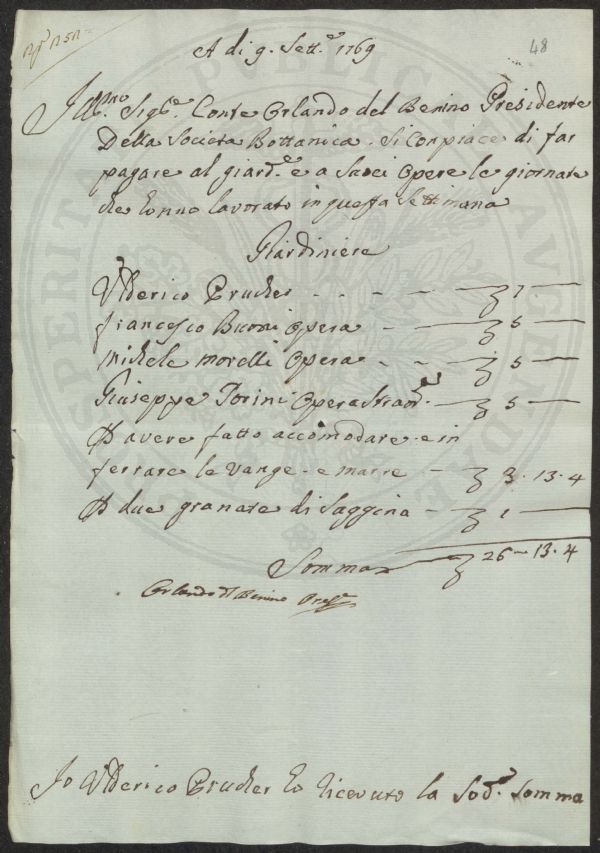 A di 9. Sett.e 1769
48
Ill.mo Sig.e Conte Orlando del Benino Presidente
Della Societa Bottanica. Si Conpiace di far
pagare al giard.e e a Suoi Opere le giornate
che Lonno lavorato in questa Settimana
Giardiniere
Ulderico Prucher - - - - 7 —
francesco Burroni Opera - — 5 —
Michele Morelli Opera - - — 5 —
Giuseppe Torini Opera Straord. — 5 —
P avere fatto accomodare e in
ferrare le Vange e marre — 3. 13. 4
P due granate di Saggina — 1 —
Somma 26 - 13. 4
Orlando d Benino Pres.e
Io Ulderico Prucher Lo ricevuto la Sod.a Somma
PUBLICAE
PROSPERITATI
AUGENDAE